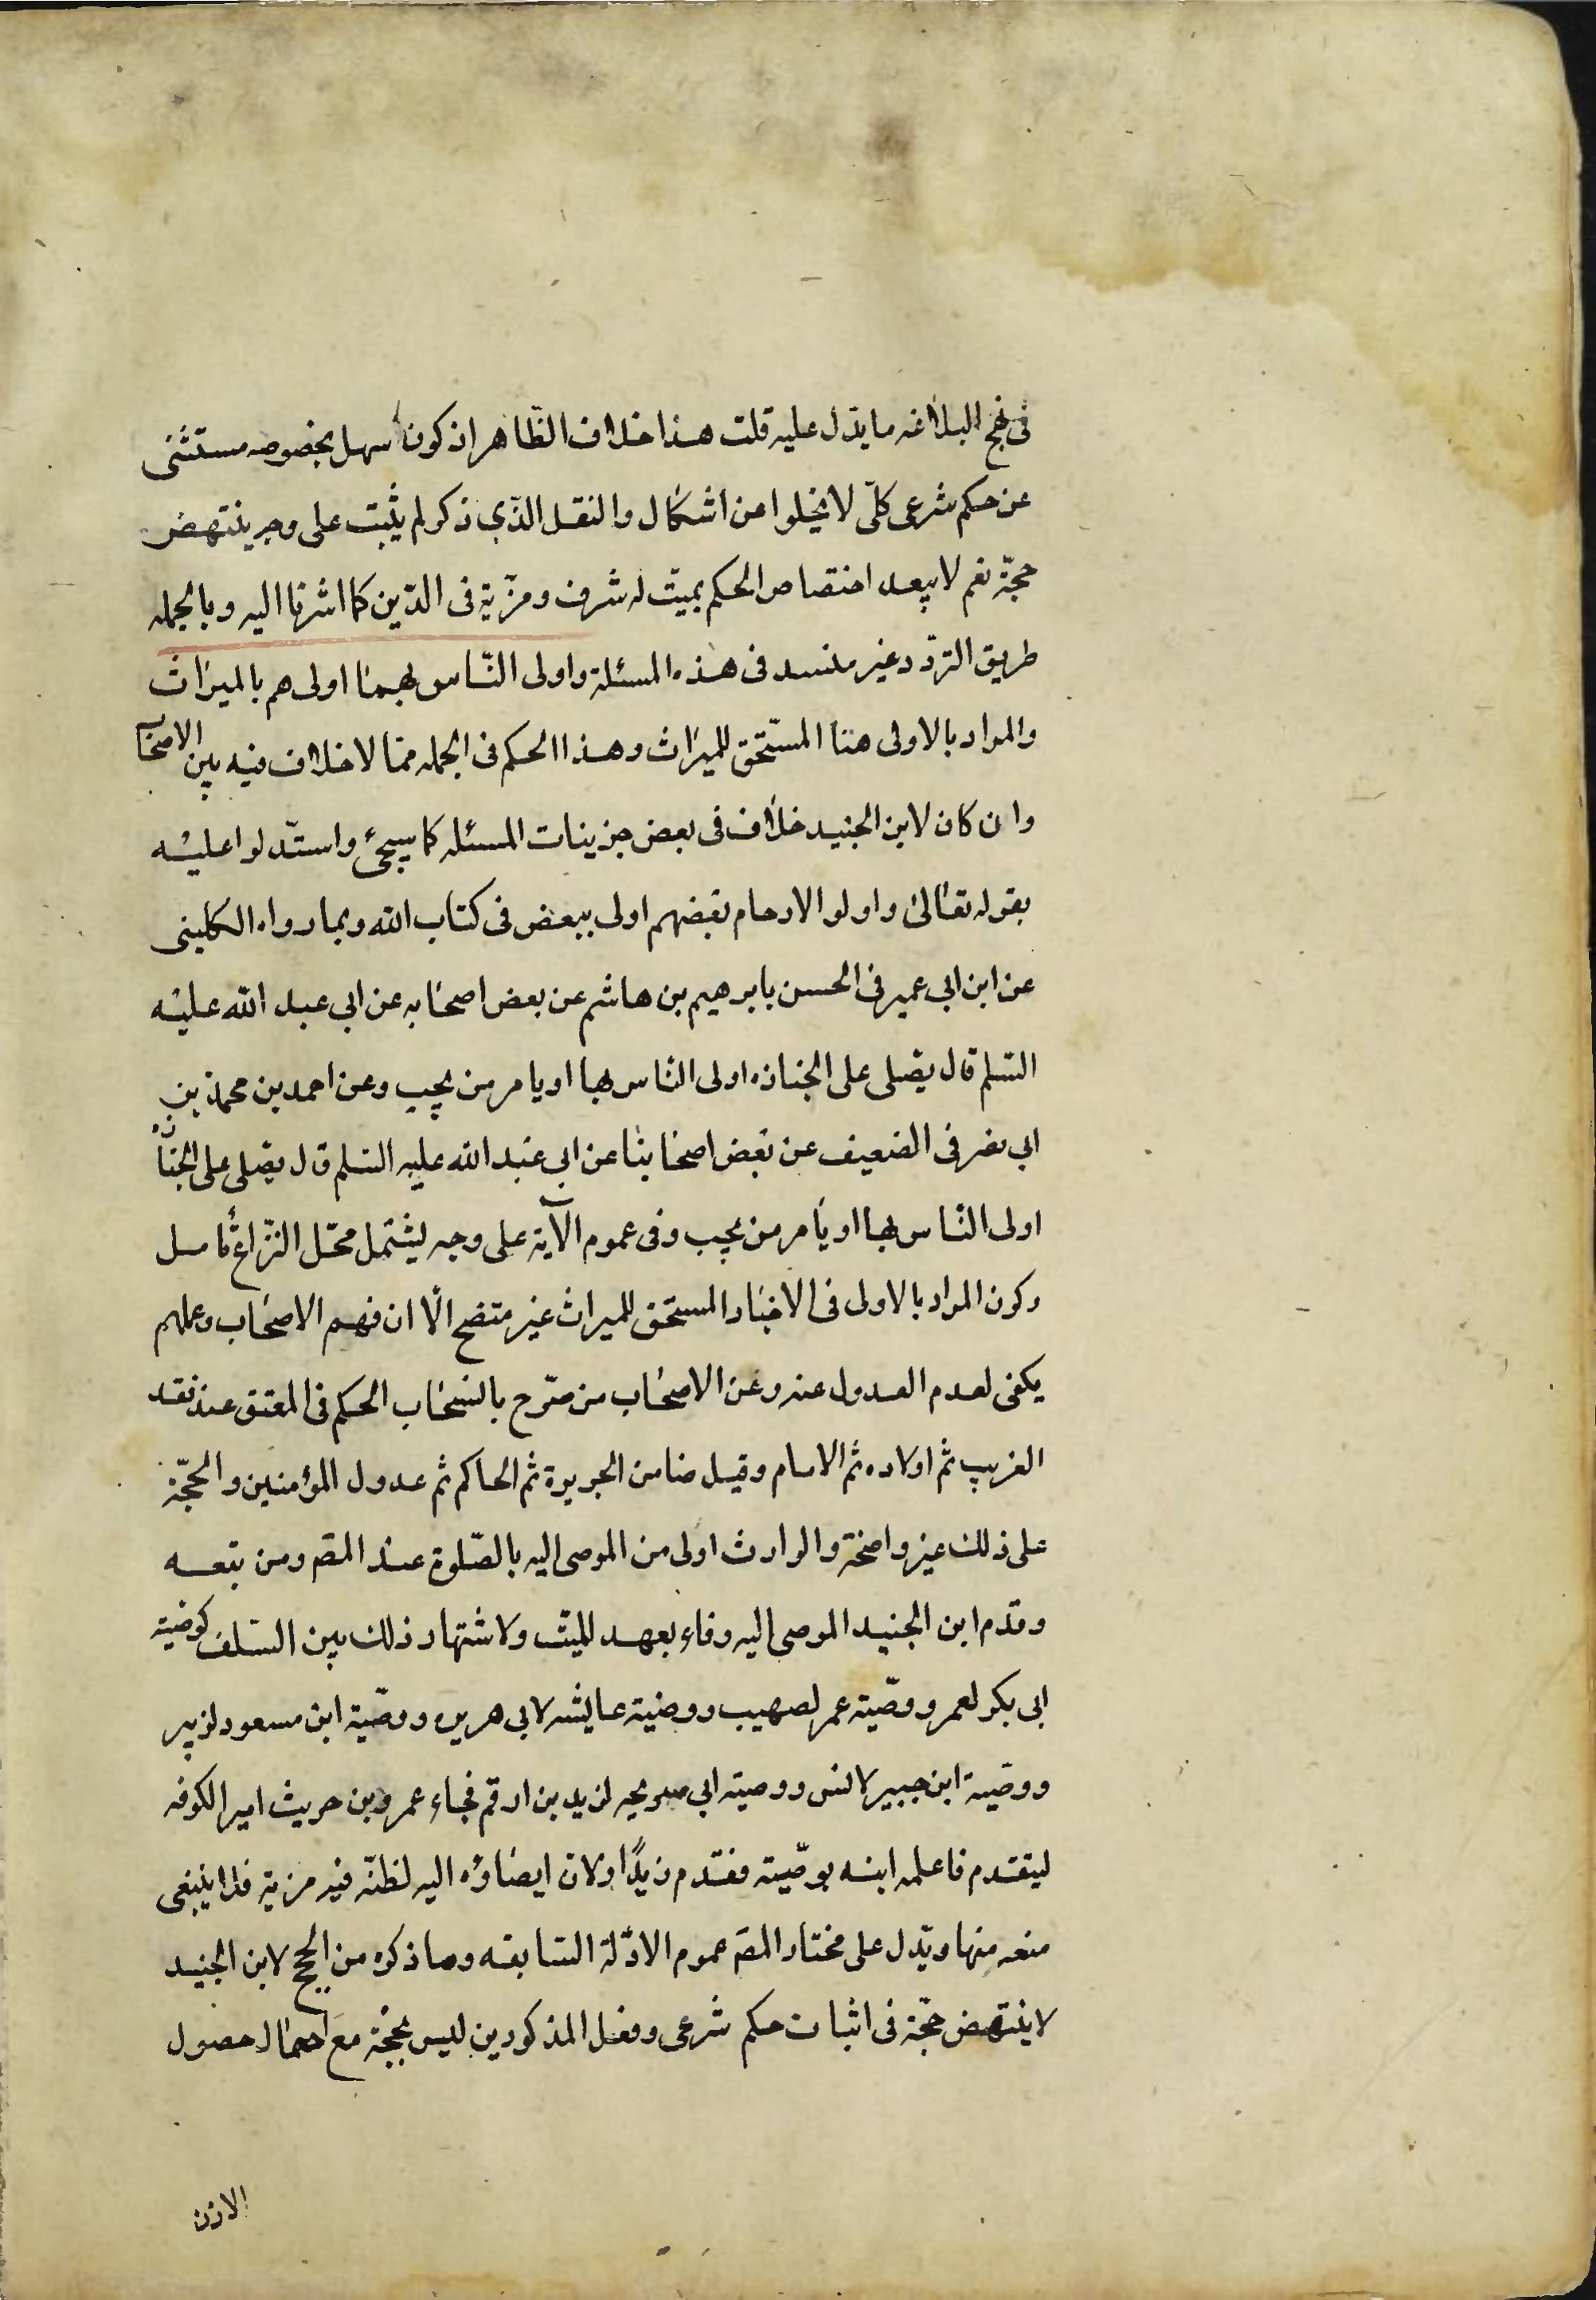 فى نهج البلاغه ما يدّل عليه قلت هذا خلاف الظّاهر اذ كون سهل بخصوصه مستثنى
عن حكم شرعى كلّى لا يخلوا عن اشكال والنقل الذّى ذكر لم يثبت على وجه ينتهض
حجّة نعم لا يبعد اختصاص الحكم بميّت له شرف ومزّية فى الدّين كما اشرنا اليه وبالجمله
طريق التردّد غير منسد فى هذه المسئلة واولى النّاس بهما اولى هم بالميراث
والمراد بالاولى هنا المستّحق للميراث وهذا الحكم فى الجمله ممّا لا خلاف فيه بين الاصحاب
وان كان لابن الجنيد خلاف فى بعض جزئيات المسئله كما سيجئ واستّدلوا عليه
بقوله تعالى واولو الارحام بعضهم اولى ببعض فى كتاب الله وبما رواه الكلينى
عن ابن ابى عمير فى الحسن بابرهيم بن هاشم عن بعض اصحابه عن ابى عبد الله عليه
السّلم قال يصّلى على الجنازه اولى النّاس بها او يامر من يحب وعن احمد بن محمد بن
ابى نصر فى الضعيف عن بعض اصحابنا عن ابى عبد الله عليه السّلم قال يصّلى على الجنازه
اولى النّاس بها او يأمر من يحب وفى عموم الآية على وجه ليشتمل محّل النّزاع تأمل
وكون المراد بالاولى فى الاخبار المستحق للميراث غير متضح الّا ان فهم الاصحاب وعملهم
يكفى لعدم العدول عنه وعن الاصحاب من صّرح بانسحاب الحكم فى المعتق عند فقد
القريب ثم اولاده ثم الامام وقيل ضامن الجريرة ثم الحاكم ثم عدول المؤمنين والحجّة
على ذلك غير واضحة والوارث اولى من الموصى اليه بالصّلوة عند المصَ ومن تبعه
وقدّم ابن الجنيد الموصى اليه وفاء بعهد الميّت ولاشتهار ذلك بين السّلف كوصية
ابى بكر لعمر ووصّية عمر لصهيب ووصّية عايشه لابى هريره ووصّية ابن مسعود لزبير
ووصّية ابن جبير لانس ووصيته ابى لزيد بن ارقم فجاء عمرو بن حريث امير الكوفه
ليتقدم فاعلمه ابنه بوصّيته فقدّم زيدًا ولان ايصاؤه اليه لظنّه فيه مزية فلا ينبغى
منعه منها ويدّل على مختار المصَ عموم الادّلة السّابقه وما ذكره من الحجج لابن الجنيد
لا ينتهض حجّة فى اثبات حكم شرعى وفعل المذكورين ليس بحجّة مع احتمال حصول
الاذن